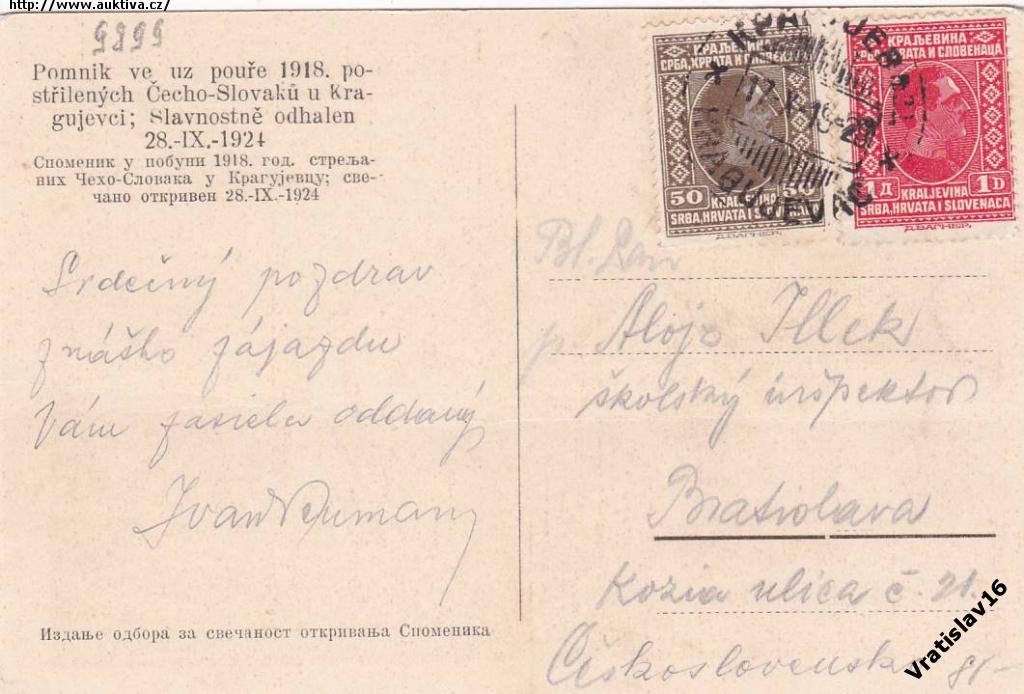 http://www.auktiva.cz/
9899
Pomnik ve uz pouře 1918. po-
střilených Čecho-Slovaků u Kra-
gujevci; Slavnostně odhalen
28.-IX.-1924
Споменик у побуни 1918. год. стреља-
них Чехо-Словака у Крагујевцу; све-
чано откривен 28.-IX.-1924
Srdečný pozdrav
z nášho zájazdu
Vám zasiela oddaný
Ivan
Издање одбора за свечаност откривања Споменика
КРАЉЕВИНА
СРБА, ХРВАТА И СЛОВЕНАЦА
50 50
KRALJEVINA
SRBA, HRVATA I SLOVENACA
Д. ВАГНЕР.
КРАЉЕВИНА
СРБА, ХРВАТА И СЛОВЕНАЦА
1Д 1D
KRALJEVINA
SRBA, HRVATA I SLOVENACA
Д. ВАГНЕР.
КРАГУЈЕВАЦ
KRAGUJEVAC
Bl. Pan
p. Alojz Illek
školský inšpektor
Bratislava
Kozia ulica č. 21.
Československ
Vratislav16